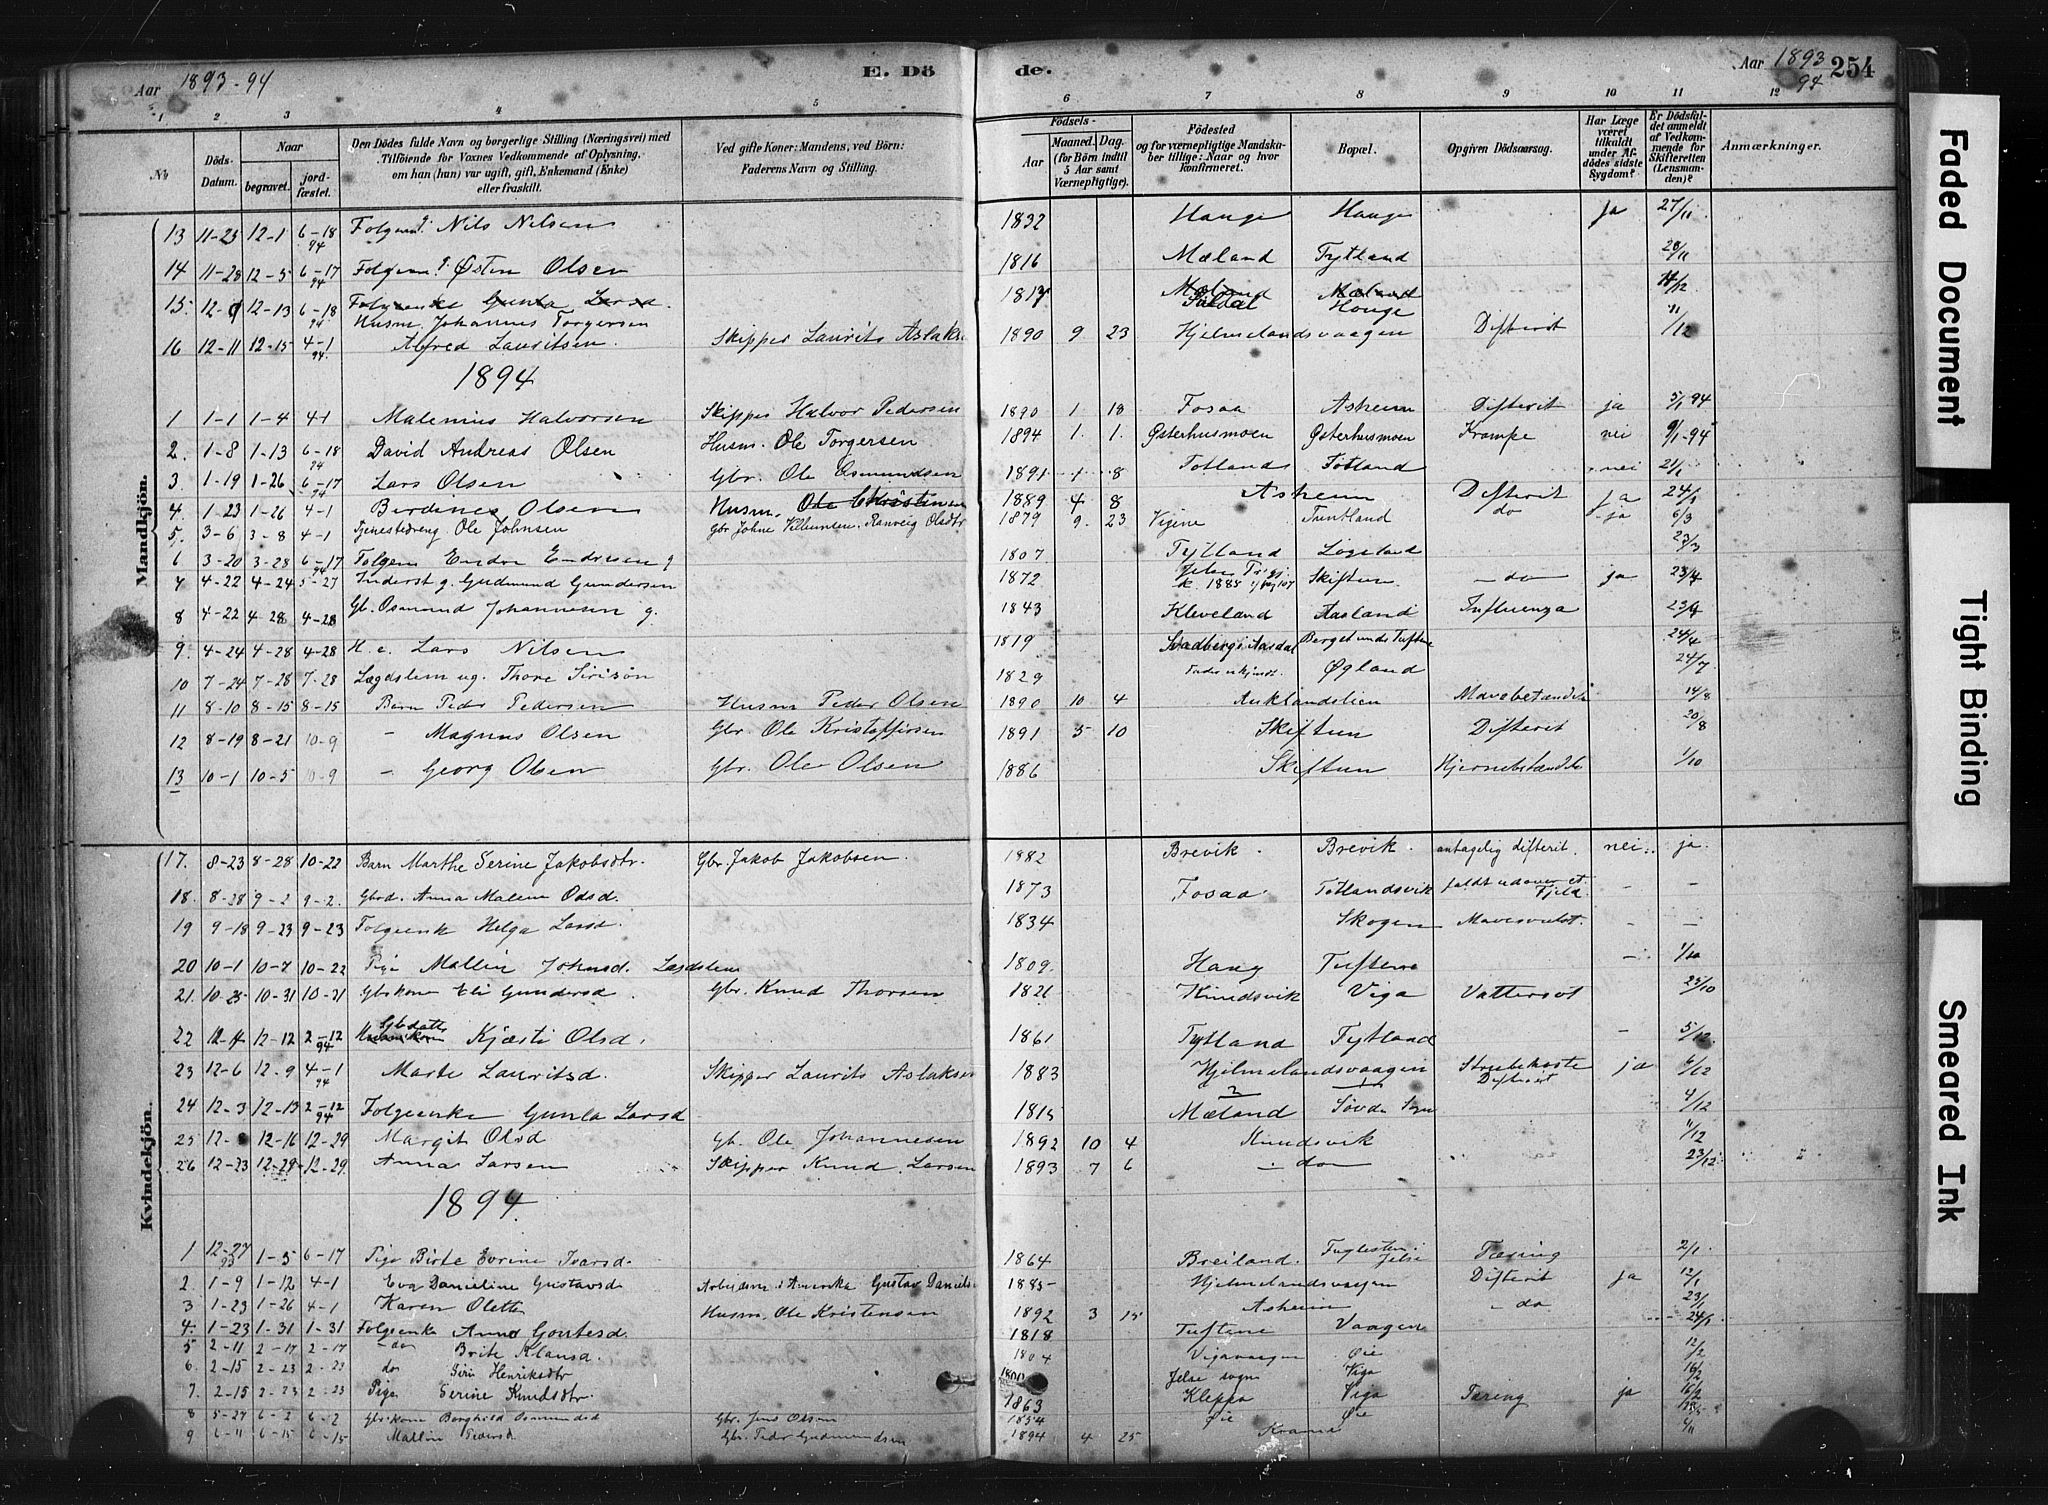 Aar 1893-94 E. Dö de. Aar 1893 94 254
1 2 3 4 5 6 7 8 9 10 11 12
No
Döds-Datum.
Naar
begravet.
jord-fæstet.
Den Dödes fulde Navn og borgerlige Stilling (Næringsvei) med
Tilföiende for Voxnes Vedkommende af Oplysning,
om han (hun) var ugift, gift, Enkemand (Enke)
eller fraskilt.
Ved gifte Koner: Mandens, ved Börn:
Faderens Navn og Stilling.
Födsels-
Aar
Maaned. Dag.
(for Börn indtil
5 Aar samt
Værnepligtige).
Födested
og for værnepligtige Mandska-
ber tillige: Naar og hvor
konfirmeret.
Bopæl.
Opgiven Dödsaarsag.
Har Læge
været
tilkaldt
under Af-
dödes sidste
Sygdom?
Er Dödsfal-
det anmeldt
af Vedkom-
mende for
Skifteretten
(Lensman-
den)?
Anmærkninger.
Mandkjön.
13 11-23 12-1 6-18 94 Folgem. Nils Nilsen 1832 Hauge Hauge ja 27/11
14 11-28 12-5 6-17 94 Folgem. Østen Olsen 1816 Mæland Tytland 28/11
15. 12- 12-13 6-18 94 Folgeenke Gunla Larsd. Mæland Mæland
Husm. Johannes Torgersen Hauge
16 12-11 12-15 4-1 94 Alfred Lauritsen. Skipper Laurits Aslaks 1890 9 23 Hjelmelandsvaagen Difterit /12
1894
1 1-1 1-4 4-1 Malenius Halvorsen Skipper Halvor Pedersen 1890 1 18 Fosaa Askeim Difterit ja 5/1 94
2. 1-8 1-13 6-18 94 David Andreas Olsen Husm. Ole Torgersen 1894 1. 1. Østerhusmoen Østerhusmoen Krampe nei 9/1-94
3. 1-19 1-26 6-17 94 Lars Olsen Gbr. Ole Osmundsen 1891 1 8 Totland Totland nei 21/1
4. 1-23 1-26 4-1 Berdines Olsen Husm. Ole Christensen 1889 4 8 Askeim Difterit ja 24/1
5. 3-6 3-8 4-1 Tjenestedreng Ole Johnsen Gbr Johne Ranveig Olsdtr 1879 9. 23 Vigene Tuntland do ja 6/3
6 3-20 3-28 6-17 94 Folgem Endre Endresen g 1807 Tytland Løgeland 23/3
7 4-22 4-24 5-27 Inderst g. Gudmund Gundersen 1872 Jelse k. 1888 Skiftun. -do- ja 23/4
8 4-22 4-28 4-28 Gb. Osmund Johannesen g. 1843 Kleveland Aasland Influenza 23/4
9. 4-24 4-28 4-28 H. e. Lars Nilsen 1819 Aardal Berget under Tuftene 24/4
10 7-24 7-28 7-28 Lægdslem ug. Thore Sirisön 1829 Øgland 24/7
11 8-10 8-15 8-15 Barn Peder Pedersen Husm Peder Olsen 1890 10 4 Auklandslien Mavebetændelse 14/8
12 8-19 8-21 10-9 - Magnus Olsen Gbr. Ole Kristoffersen 1891 5 10 Skiftun Difterit 20/8
13 10-1 10-5 10-9 - Georg Olsen Gbr. Ole Olsen 1886 Skiftun Hjernebetændelse 1/10
Kvindekjön.
17. 8-23 8-28 10-22 Barn Marthe Serine Jakobsdtr. Gbr Jakob Jakobsen. 1882 Brevik. Brevik. antagelig difterit. nei. ja.
18. 8-28 9-2 9-2. Gbrd. Anna Malene Olsd. 1873 Fosaa. Totlandsvik faldt udover et Fjeld - -
19 9-18 9-23 9-23 Folgeenke Helga Larsd. 1834 Skogen Mavesvulst. - -
20 10-1 10-7 10-22 Pige Mallin Johnsd. Lægdslem 1809. Haug Tuftene - 1/10
21. 10-25 10-31 10-31 Gbskone Eli Gundersd. Gbr. Knud Thorsen 1821 Knudsvik Viga Vattersot 25/10
22 12-4 12-12 2-12 94 Gbdatter Kjæsti Olsd. 1861 Tytland Tytland - 5/12.
23 12-6 12-9 4-1 94 Marte Lauritsd. Skipper Laurits Aslaksen 1883 Hjelmelandsvaagen Strubehoste Difterit ja 6/12
24 12-3 12-13 2-12 94 Folgeenke Gunla Larsd 1815 Mæland Søvde Sogn 4/12
25 12- 12-16 12-29 Margit Olsd Gb. Ole Johannesen 1892 10 4 Knudsvik 11/12
26 12-23 12-29 12-29. Anna Larsen Skipper Knud Larsen 1893 7 6 - do - 23/12
1894.
1 12-27 93 1-5 6-17 Pige Birte Evrine Ivarsd. 1864 Breiland. Fuglesten i Jelse Tæring 2/1.
2 1-9 1-12 4-1 Eva Danieline Gustavsd Arbeidsm i Amerika Gustav Daniels 1885- Hjelmelandsvaagen Difterit ja 12/1
3 1-23 1-26 4-1 Karen Olette Husm. Ole Kristensen 1892 3 15 Askeim - do 23/1
4. 1-23 1-31 1-31 Folgeenke Anna Goutesd. 1818 Tuftene Vaagen 24/1
5 2-11 2-17 2-17 -do- Brite Klausd. 1804 Vigavaagen Øie 12/2
6. 2-15 2-23 2-23 do Siri Henriksdtr 1800 Jelse sogn Viga 16/2
7. 2-15 2-23 2-23 Pige Serine Knudsdtr. 1863 Kleppa Viga Tæring ja 16/2
8 5-27 6-2 6-2 Gbr.kone Borghild Osmundsd Gbr. Jens Olsen 1854 Øie Øie
9 6-11 6-15 6-15 Mallin Pedersd Gbr. Peder Gudmundsen 1894 4 25
Faded Document
Tight Binding
Smeared Ink